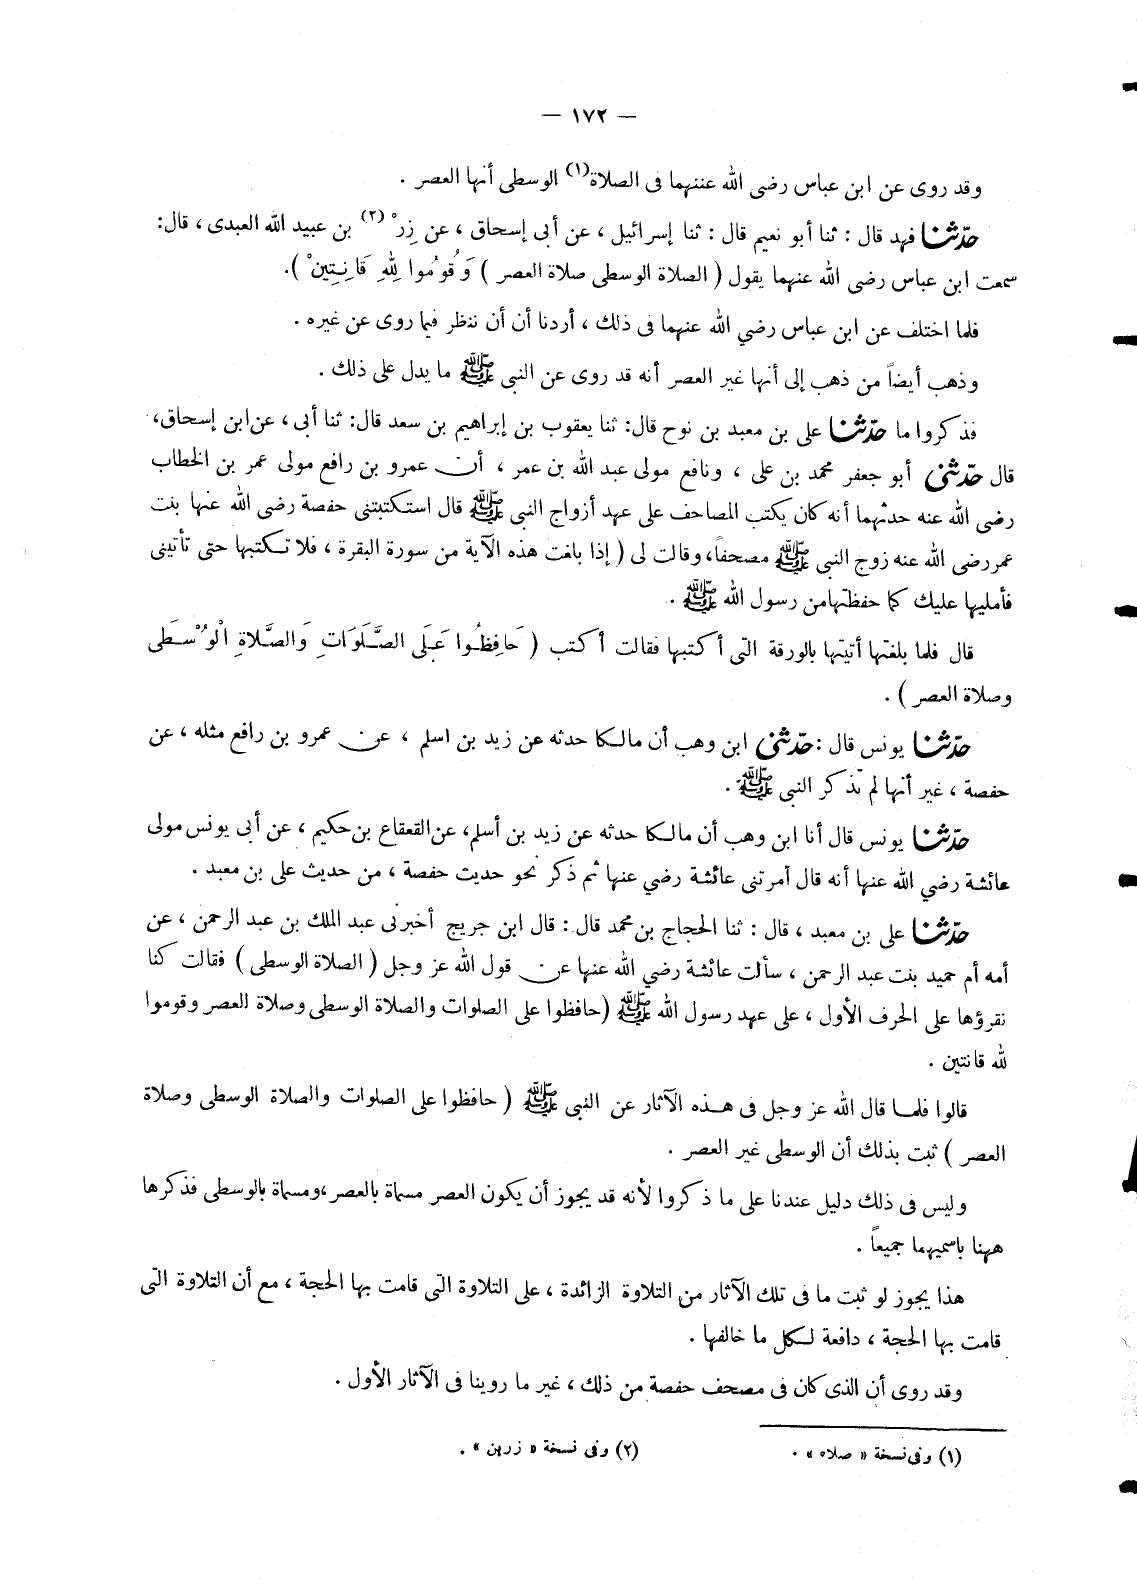 — ١٧٢ —
وقد روى عن ابن عباس رضى الله عننهما فى الصلاة(١) الوسطى أنها العصر .
حدّثنا فهد قال : ثنا أبو نعيم قال : ثنا إسرائيل ، عن أبى إسحاق ، عن زِرْ (٢) بن عبيد الله العبدى ، قال:
سمعت ابن عباس رضى الله عنهما يقول ( الصلاة الوسطى صلاة العصر ) وَقُومُوا لِلهِ قَانِتِينْ ).
فلما اختلف عن ابن عباس رضي الله عنهما فى ذلك ، أردنا أن أن ننظر فيما روى عن غيره .
وذهب أيضاً من ذهب إلى أنها غير العصر أنه قد روى عن النبى ﷺ ما يدل على ذلك .
فذكروا ما حدّثنا على بن معبد بن نوح قال: ثنا يعقوب بن إبراهيم بن سعد قال: ثنا أبى ، عن ابن إسحاق،
قال حدّثنى أبو جعفر محمد بن على ، ونافع مولى عبد الله بن عمر ، أن عمرو بن رافع مولى عمر بن الخطاب
رضى الله عنه حدثهما أنه كان يكتب المصاحف على عهد أزواج النبى ﷺ قال استكتبتنى حفصة رضى الله عنها بنت
عمر رضى الله عنه زوج النبى ﷺ مصحفاً، وقالت لى ( إذا بلغت هذه الآية من سورة البقرة ، فلا تكتبها حتى تأتينى
فأمليها عليك كما حفظتها من رسول الله ﷺ .
قال فلما بلغتها أتيتها بالورقة التى أكتبها فقالت أكتب ( حَافِظُوا عَلَى الصَّلَوَاتِ وَالصَّلاةِ الْوُسْطَى
وصلاة العصر ) .
حدّثنا يونس قال : حدّثنى ابن وهب أن مالكا حدثه عن زيد بن اسلم ، عن عمرو بن رافع مثله ، عن
حفصة ، غير أنها لم تذكر النبى ﷺ .
حدّثنا يونس قال أنا ابن وهب أن مالكا حدثه عن زيد بن أسلم، عن القعقاع بن حكيم ، عن أبى يونس مولى
عائشة رضي الله عنها أنه قال أمرتنى عائشة رضي عنها ثم ذكر نحو حديث حفصة ، من حديث على بن معبد .
حدّثنا على بن معبد ، قال : ثنا الحجاج بن محمد قال : قال ابن جريج أخبرنى عبد الملك بن عبد الرحمن ، عن
أمه أم حميد بنت عبد الرحمن ، سألت عائشة رضي الله عنها عن قول الله عز وجل ( الصلاة الوسطى ) فقالت كنا
نقرؤها على الحرف الأول ، على عهد رسول الله ﷺ (حافظوا على الصلوات والصلاة الوسطى وصلاة العصر وقوموا
لله قانتين .
قالوا فلما قال الله عز وجل فى هذه الآثار عن النبى ﷺ ( حافظوا على الصلوات والصلاة الوسطى وصلاة
العصر ) ثبت بذلك أن الوسطى غير العصر .
وليس فى ذلك دليل عندنا على ما ذكروا لأنه قد يجوز أن يكون العصر مسماة بالعصر،ومسماة بالوسطى فذكرها
ههنا باسميهما جميعاً .
هذا يجوز لو ثبت ما فى تلك الآثار من التلاوة الزائدة ، على التلاوة التى قامت بها الحجة ، مع أن التلاوة التى
قامت بها الحجة ، دافعة لكل ما خالفها .
وقد روى أن الذى كان فى مصحف حفصة من ذلك ، غير ما روينا فى الآثار الأول .
(١) وفى نسخة « صلاه » . (٢) وفى نسخة « زرين » .